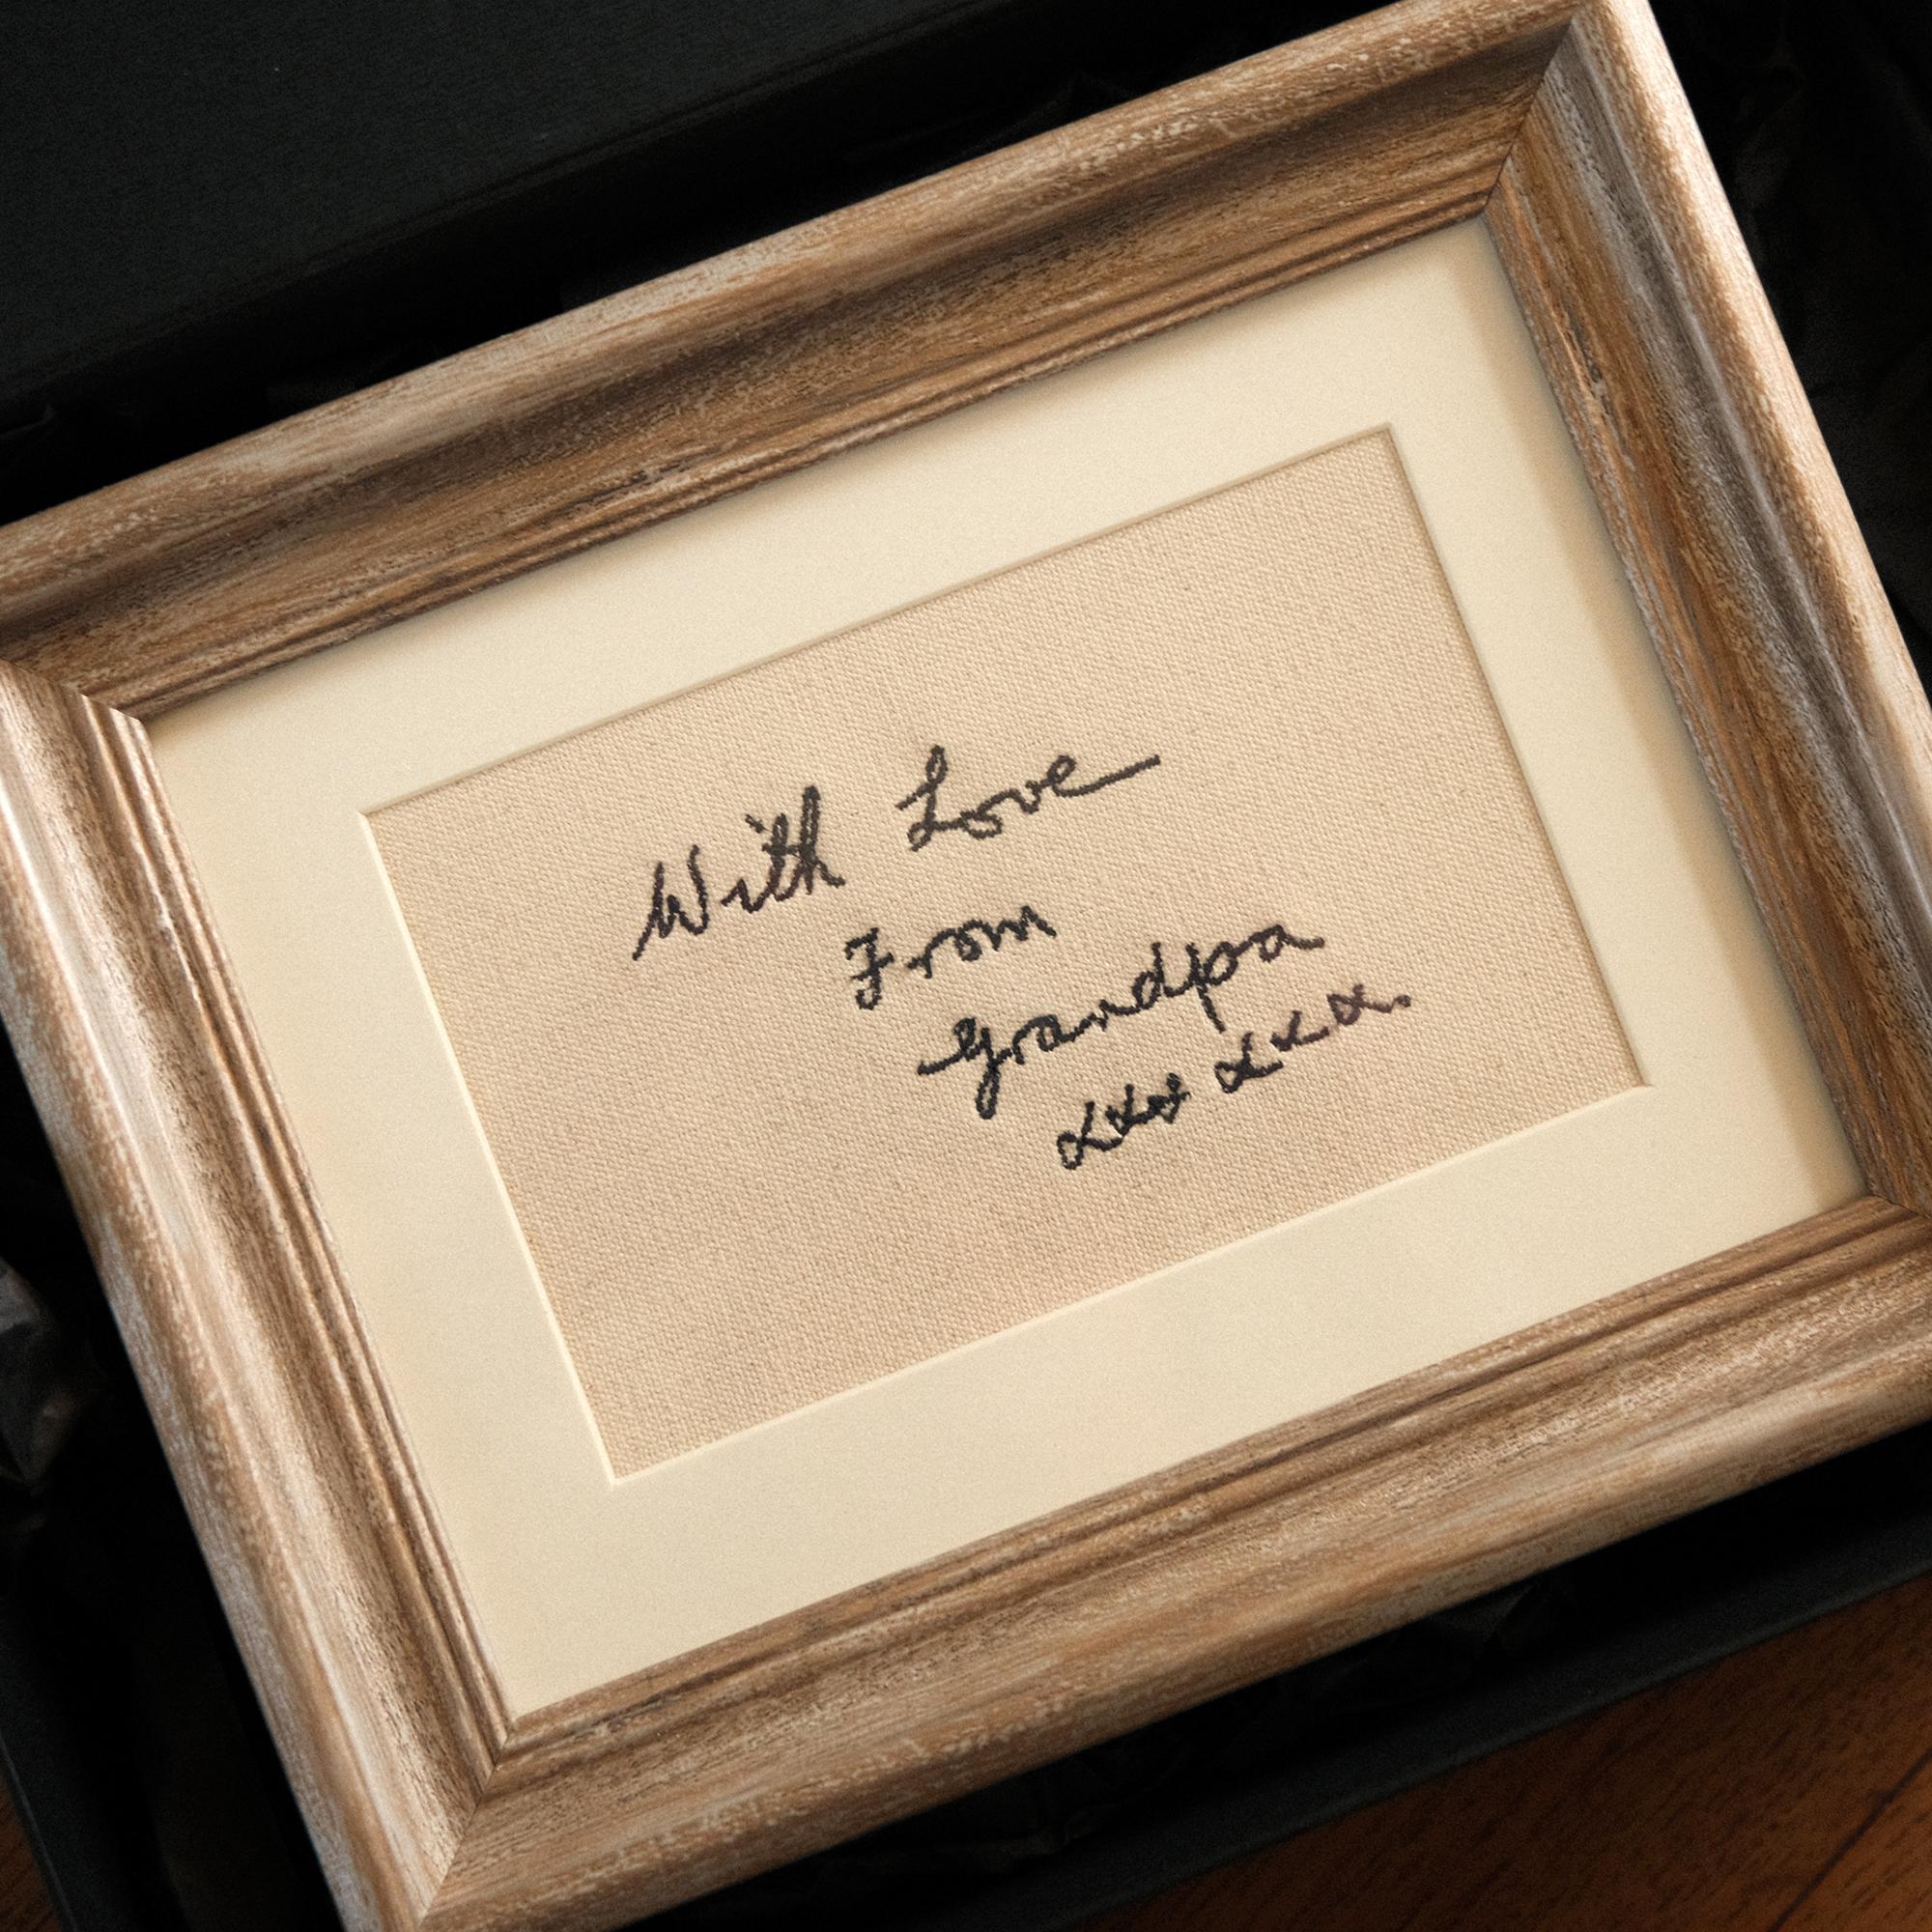 With Love
From
Grandpa
xxx xxx.